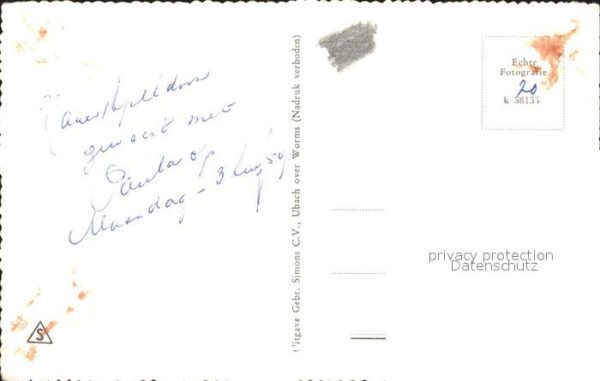 geweest met
op
Maandag - 3
Uitgave Gebr. Simons C.V., Ubach over Worms (Nadruk verboden)
Echte
Fotografie
20
k 58155
privacy protection
Datenschutz
S